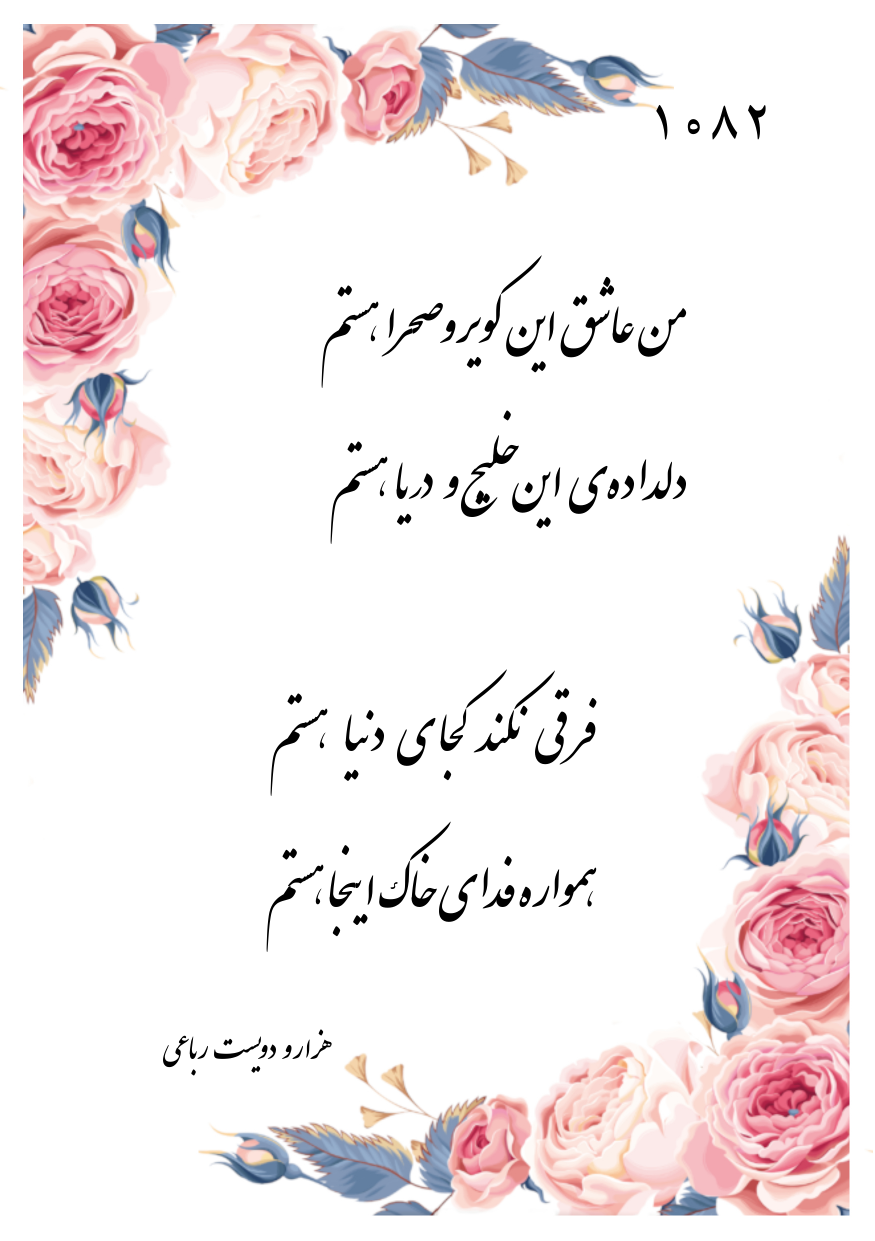 ۱۰۸۲
من عاشق این کویر و صحرا هستم
دلداده‌ی این خلیج و دریا هستم
فرقی نکند کجای دنیا هستم
همواره فدای خاک اینجا هستم
هزار و دویست رباعی